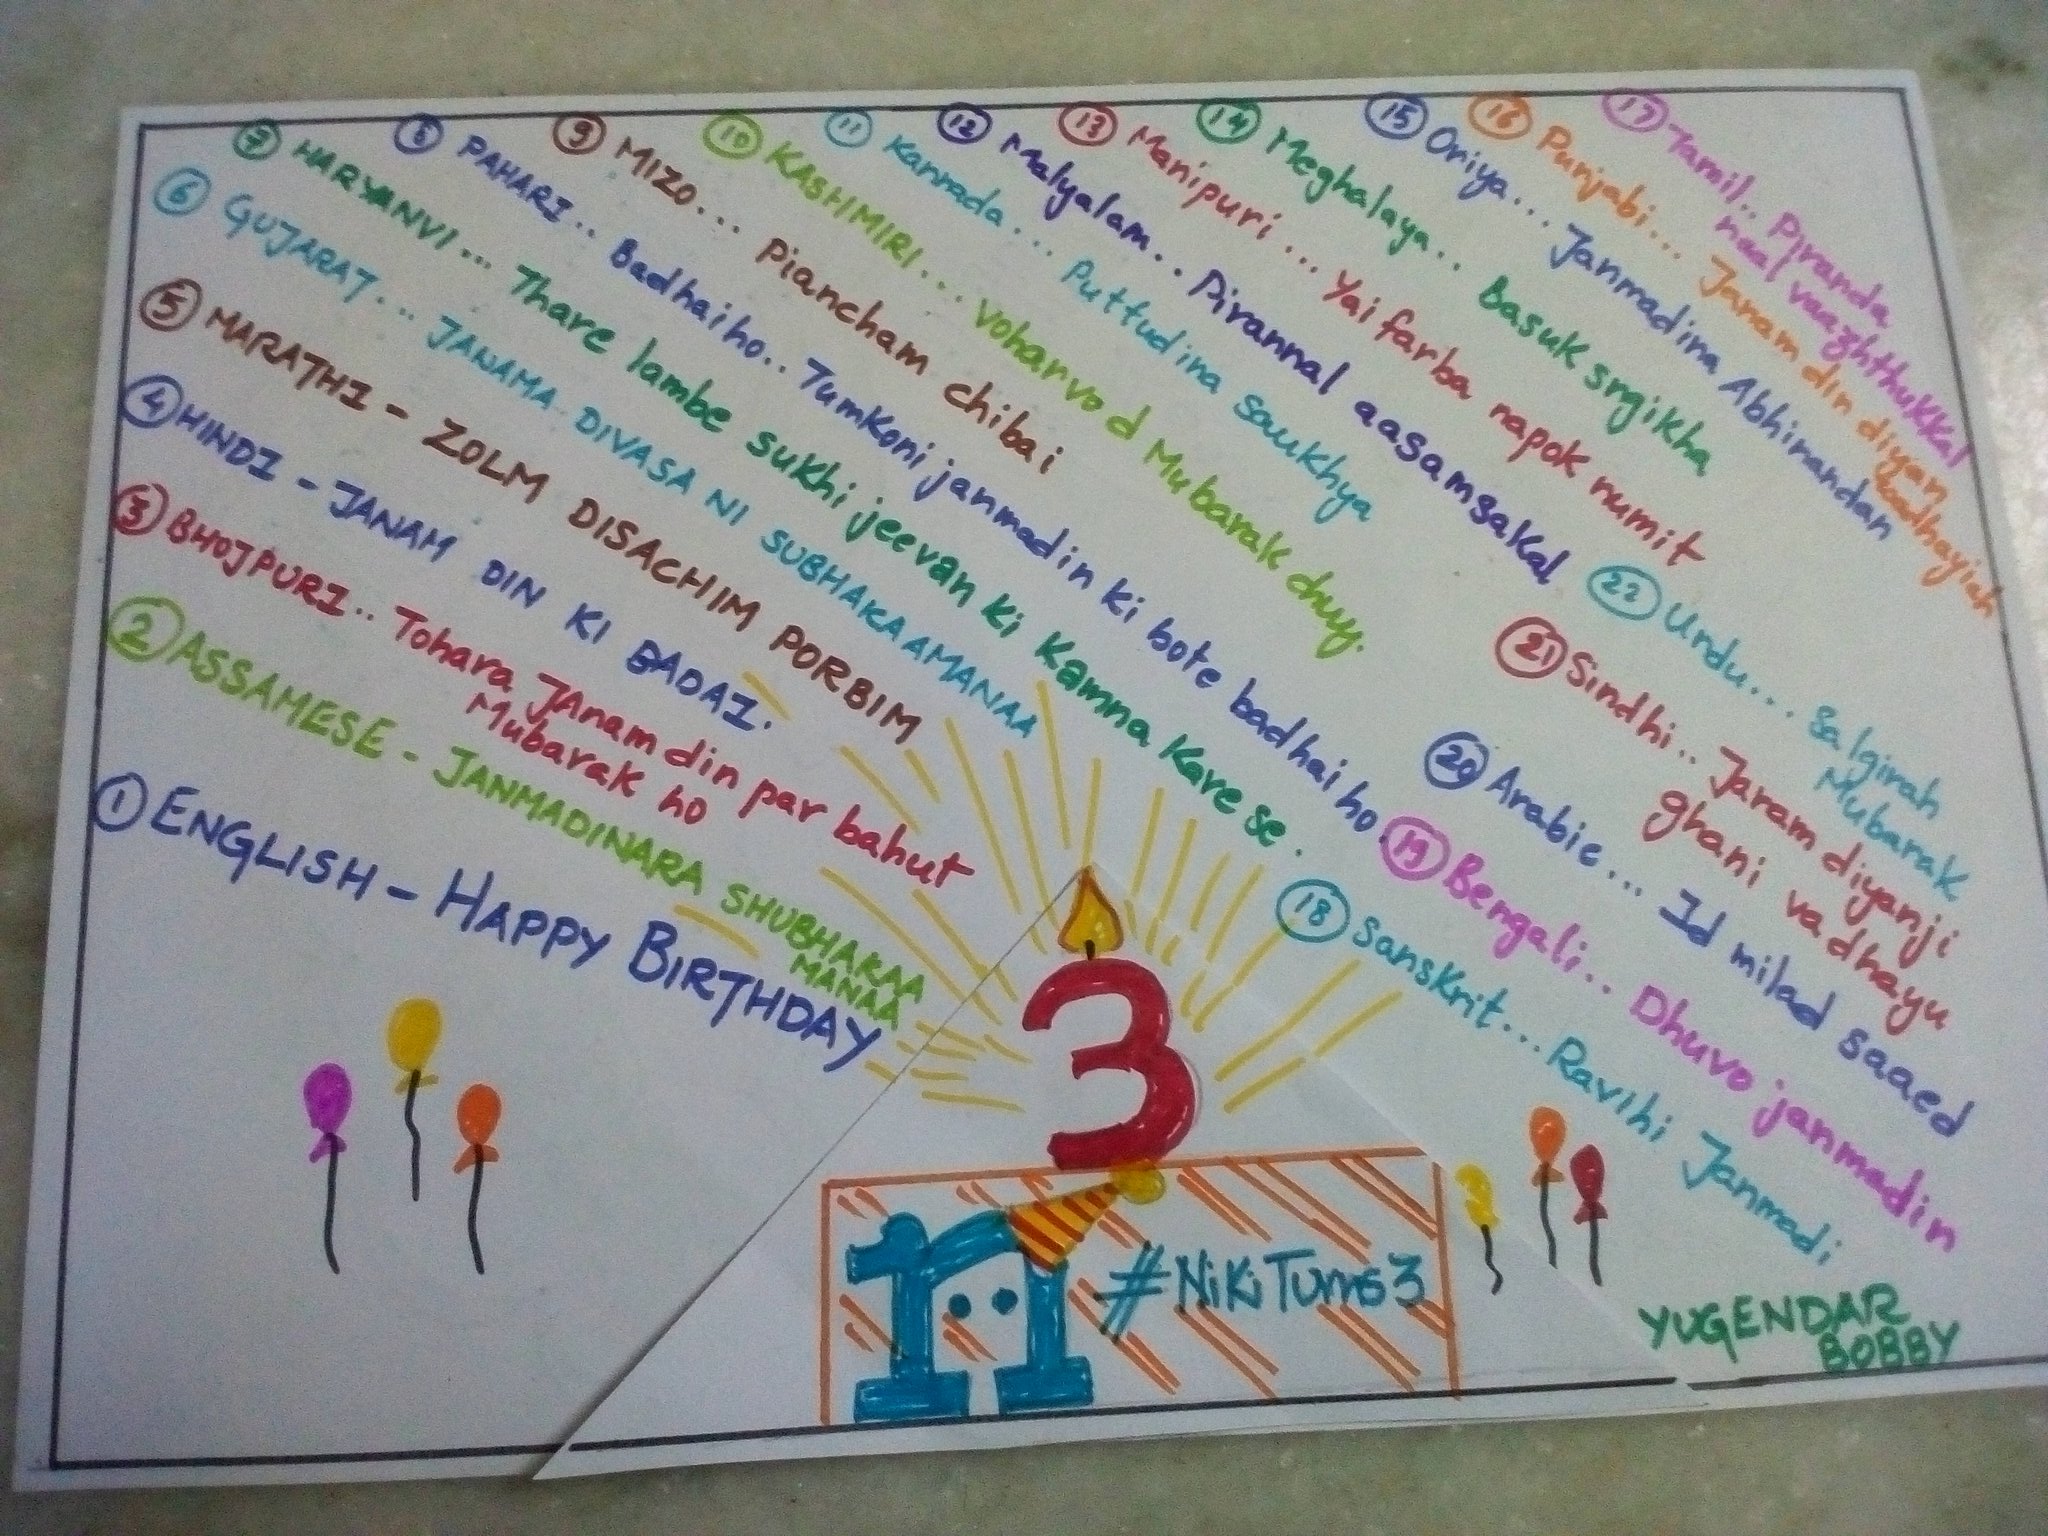 ① ENGLISH - HAPPY BIRTHDAY
② ASSAMESE - JANMADINARA SHUBHAKAA
MANAA
③ BHOJPURI.. Tohara JAnam din par bahut
Mubarak ho
④ HINDI - JANAM DIN KI BADAI.
⑤ MARATHI - ZOLM DISACHIM PORBIM
⑥ GUJARAT... JANAMA DIVASA NI SUBHAKAAMANAA
⑦ HARYANVI... Thare lambe sukhi jeevan ki Kamna Kare se.
⑧ PAHARI.. Badhai ho.. Tumkoni janmadin ki bote badhai ho.
⑨ MIZO... Piancham chibai
⑩ KASHMIRI... voharvod Mubarak chuy.
⑪ Kannada... Puttudina saukhya
⑫ Malyalam.. Pirannal aasamsakal
⑬ Manipuri... Yai farba napok numit
⑭ Meghalaya.. Basuk srngikha
⑮ Oriya... Janmadina Abhinandan
⑯ Punjabi... Janam din diyan
vadhayiah
⑰ Tamil.. Piranda
naal vaazhthukkal
⑱ Sanskrit... Ravihi Janmadi
⑲ Bengali.. Dhuvo janmadin
⑳ Arabic... Id milad saaed
㉑ Sindhi.. Jaram diyanji
ghani vadhayu
㉒ Urdu... Salgirah
Mubarak
3
#NiKiTurns3
YUGENDAR
BOBBY